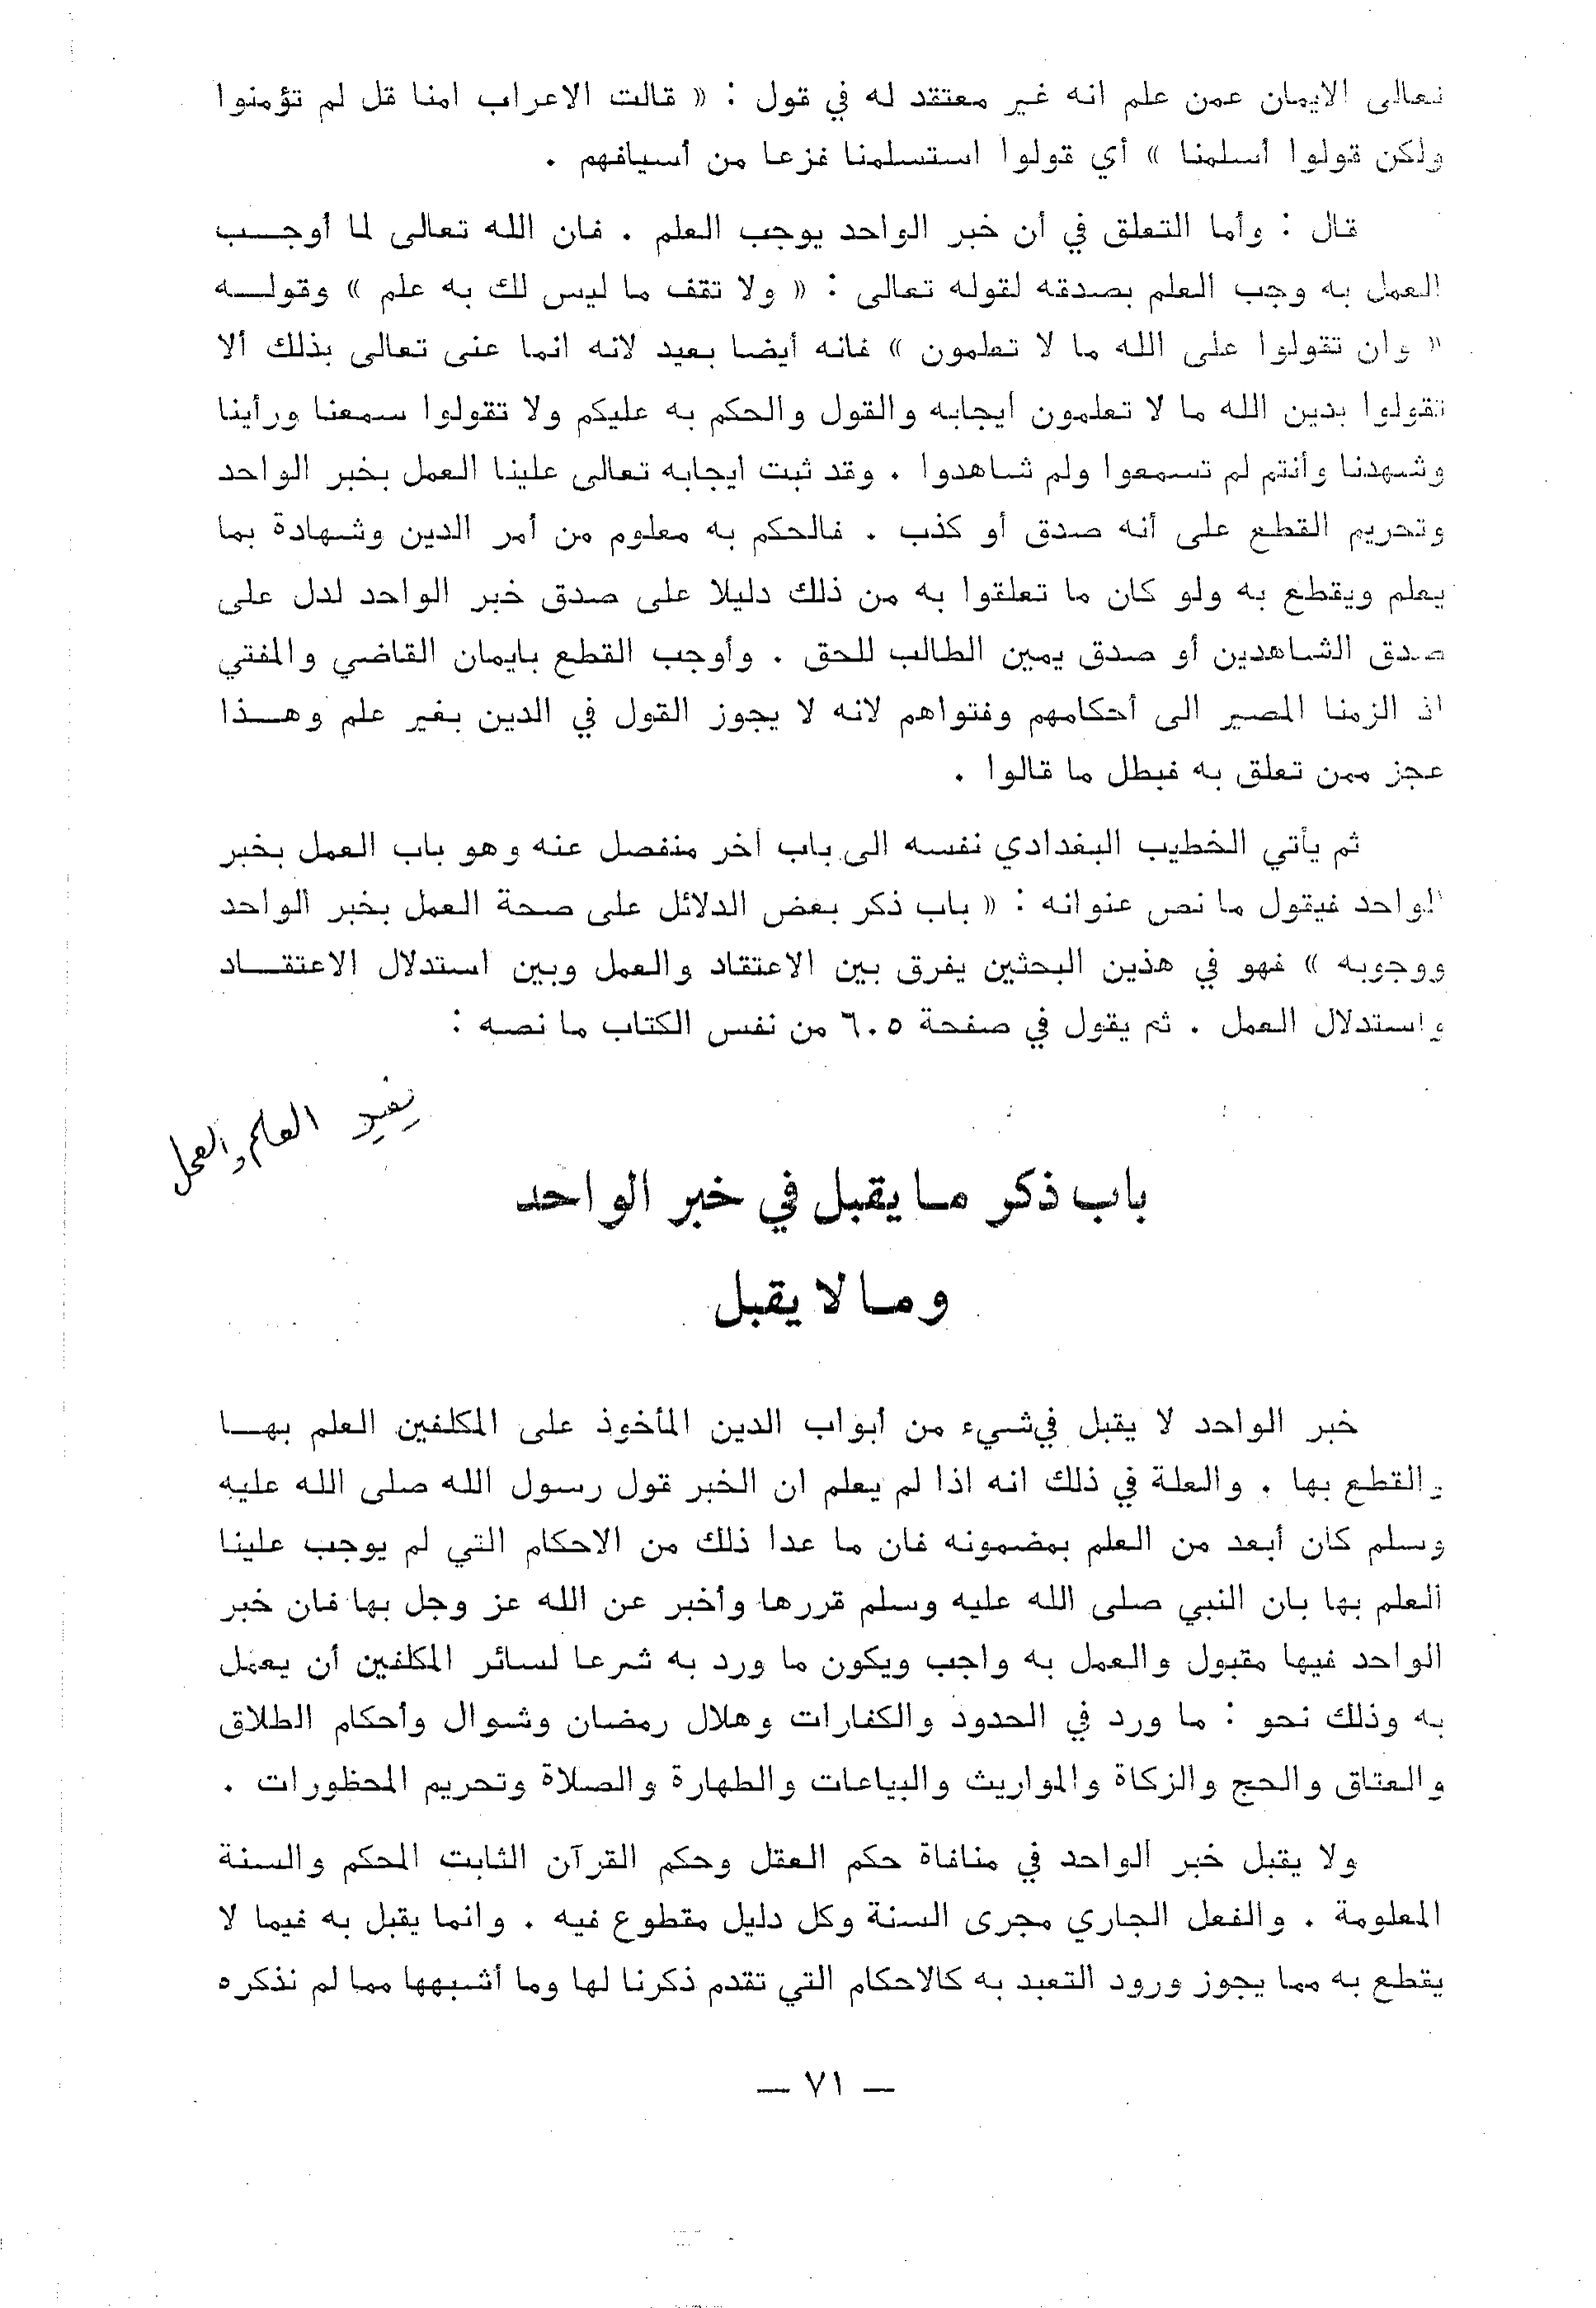 تعالى الايمان عمن علم انه غير معتقد له في قول : « قالت الاعراب امنا قل لم تؤمنوا
ولكن قولوا أسلمنا » أي قولوا استسلمنا فزعا من أسيافهم .
قال : وأما التعلق في أن خبر الواحد يوجب العلم . فان الله تعالى لما أوجب
العمل به وجب العلم بصدقه لقوله تعالى : « ولا تقف ما ليس لك به علم » وقوله
« وان تقولوا على الله ما لا تعلمون » فانه أيضا بعيد لانه انما عنى تعالى بذلك ألا
تقولوا بدين الله ما لا تعلمون ايجابه والقول والحكم به عليكم ولا تقولوا سمعنا ورأينا
وشهدنا وأنتم لم تسمعوا ولم شاهدوا . وقد ثبت ايجابه تعالى علينا العمل بخبر الواحد
وتحريم القطع على أنه صدق أو كذب . فالحكم به معلوم من أمر الدين وشهادة بما
يعلم ويقطع به ولو كان ما تعلقوا به من ذلك دليلا على صدق خبر الواحد لدل على
صدق الشاهدين أو صدق يمين الطالب للحق . وأوجب القطع بايمان القاضي والمفتي
اذ الزمنا المصير الى أحكامهم وفتواهم لانه لا يجوز القول في الدين بغير علم وهذا
عجز ممن تعلق به فبطل ما قالوا .
ثم يأتي الخطيب البغدادي نفسه الى باب أخر منفصل عنه وهو باب العمل بخبر
الواحد فيقول ما نص عنوانه : « باب ذكر بعض الدلائل على صحة العمل بخبر الواحد
ووجوبه » فهو في هذين البحثين يفرق بين الاعتقاد والعمل وبين استدلال الاعتقاد
واستدلال العمل . ثم يقول في صفحة ٦٠٥ من نفس الكتاب ما نصه :
يفيد العلم والعمل
باب ذكر ما يقبل في خبر الواحد
وما لا يقبل
خبر الواحد لا يقبل في شيء من أبواب الدين المأخوذ على المكلفين العلم بها
والقطع بها . والعلة في ذلك انه اذا لم يعلم ان الخبر قول رسول الله صلى الله عليه
وسلم كان أبعد من العلم بمضمونه فان ما عدا ذلك من الاحكام التي لم يوجب علينا
العلم بها بان النبي صلى الله عليه وسلم قررها وأخبر عن الله عز وجل بها فان خبر
الواحد فيها مقبول والعمل به واجب ويكون ما ورد به شرعا لسائر المكلفين أن يعمل
به وذلك نحو : ما ورد في الحدود والكفارات وهلال رمضان وشوال وأحكام الطلاق
والعتاق والحج والزكاة والمواريث والبياعات والطهارة والصلاة وتحريم المحظورات .
ولا يقبل خبر الواحد في منافاة حكم العقل وحكم القرآن الثابت المحكم والسنة
المعلومة . والفعل الجاري مجرى السنة وكل دليل مقطوع فيه . وانما يقبل به فيما لا
يقطع به مما يجوز ورود التعبد به كالاحكام التي تقدم ذكرنا لها وما أشبهها مما لم نذكره
— ٧١ —